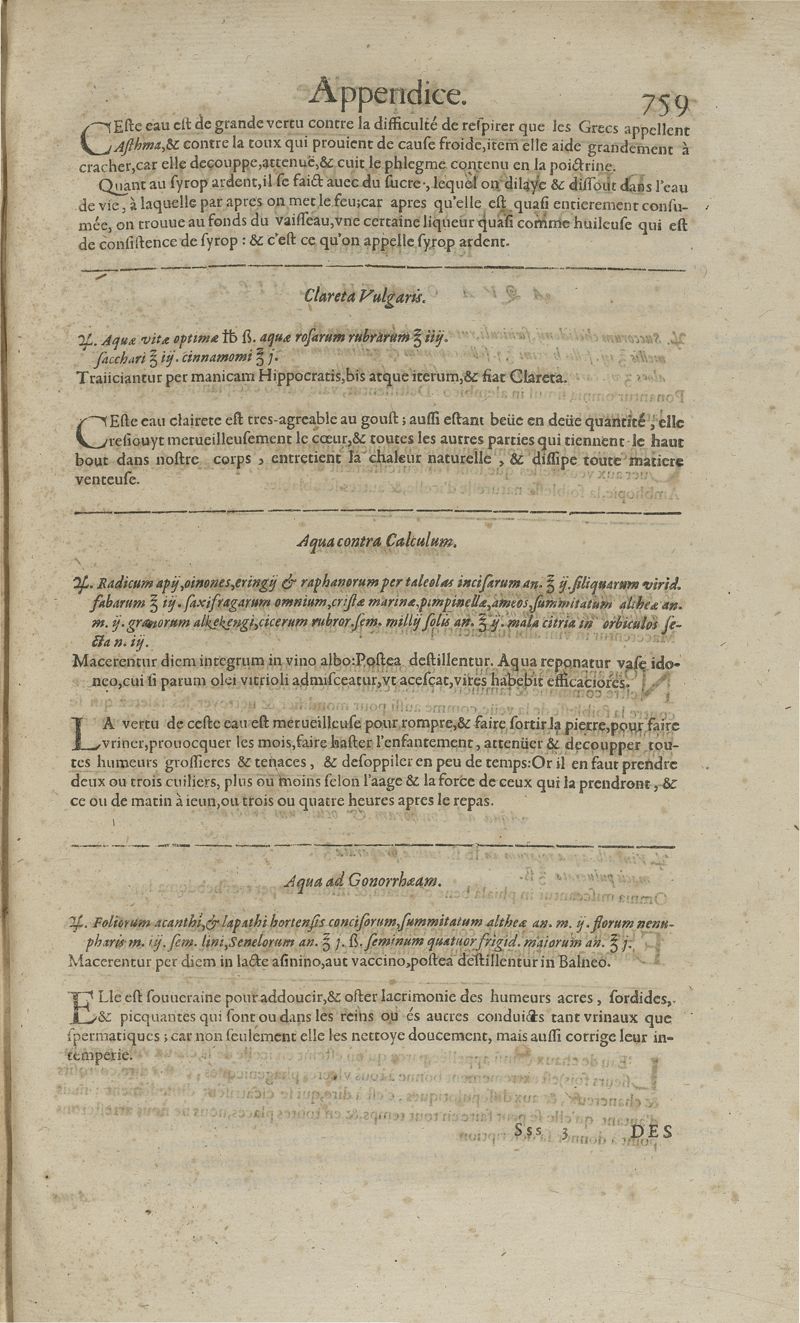 Appendice. 759
CEste eau est de grande vertu contre la difficulté de respirer que les Grecs appellent
Asthma,& contre la toux qui prouient de cause froide,item elle aide grandement à
cracher,car elle decouppe,attenuë,& cuit le phlegme contenu en la poictrine.
Quant au syrop ardent,il se faict auec du sucre, lequel on dilaye & dissout dans l'eau
de vie, à laquelle par apres on met le feu;car apres qu'elle est quasi entierement consu-
mée, on trouue au fonds du vaisseau,vne certaine liqueur quasi comme huileuse qui est
de consistence de syrop : & c'est ce qu'on appelle syrop ardent.
Clareta Vulgaris.
♃. Aquæ vitæ optimæ ℔ ß. aquæ rosarum rubrarum ℥ iiij.
sacchari ℥ iij. cinnamomi ℥ j.
Traiiciantur per manicam Hippocratis,bis atque iterum,& fiat Clareta.
CEste eau clairete est tres-agreable au goust ; aussi estant beüe en deüe quantité , elle
resiouyt merueilleusement le cœur,& toutes les autres parties qui tiennent le haut
bout dans nostre corps , entretient la chaleur naturelle , & dissipe toute matiere
venteuse.
Aqua contra Calculum.
♃. Radicum apij,oinones,eringij & raphanorum per taleolas incisarum an. ℥ ij. siliquarum virid.
fabarum ℥ iij. saxifragarum omnium,cristæ marinæ,pimpinellæ,ameos,summitatum altheæ an.
m. ij. granorum alkekengi,cicerum rubror,sem. milij solis an. ℥ ij. mala citria in orbiculos se-
cta n. iij.
Macerentur diem integrum in vino albo:Postea destillentur. Aqua reponatur vase ido-
neo,cui si parum olei vitrioli admisceatur,vt acescat,vires habebit efficaciores.
LA vertu de ceste eau est merueilleuse pour rompre,& faire sortir la pierre,pour faire
vriner,prouocquer les mois,faire haster l'enfantement, attenüer & decoupper tou-
tes humeurs grossieres & tenaces , & desoppiler en peu de temps:Or il en faut prendre
deux ou trois cuiliers, plus ou moins selon l'aage & la force de ceux qui la prendront , &
ce ou de matin à ieun,ou trois ou quatre heures apres le repas.
Aqua ad Gonorrhæam.
♃. Foliorum acanthi,& lapathi hortensis concisorum,summitatum altheæ an. m. ij. florum nenu-
pharis m. iij. sem. lini,Senelorum an. ℥ j. ß. seminum quatuor frigid. maiorum an. ℥ j.
Macerentur per diem in lacte asinino,aut vaccino,postea destillentur in Balneo.
ELle est souueraine pour addoucir,& oster lacrimonie des humeurs acres, sordides,
& picquantes qui sont ou dans les reins ou és autres conduicts tant vrinaux que
spermatiques ; car non seulement elle les nettoye doucement, mais aussi corrige leur in-
temperie.
Sss 3 DES